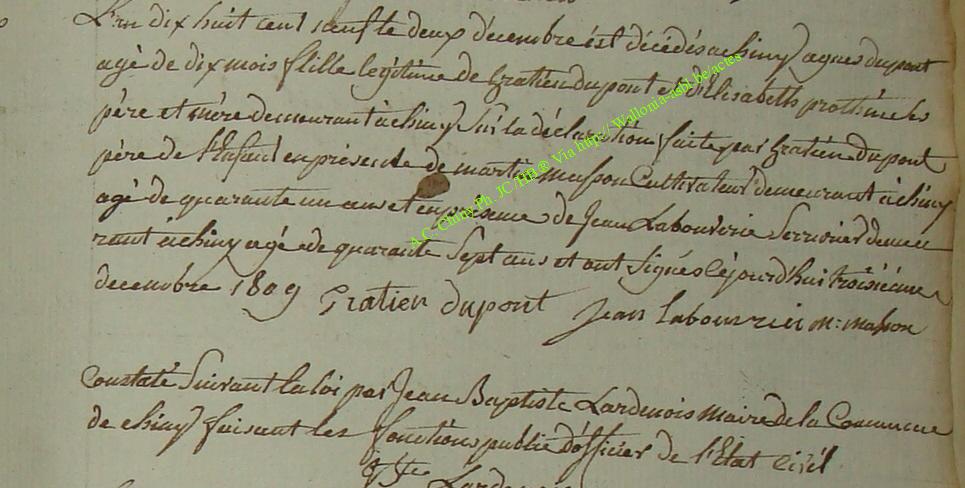 L'an dix huit cent neuf le deux décembre est décédés a chiny agnes dupont
agé de dix mois fille legitime de gratien dupont et d'Elisabeth
père et mère demeurant à chiny Sur la déclaration faite par gratien dupont
père de l'Enfant en présence de martin masson Cultivateur demeurant à chiny
agé de quarante un ans et en présence de Jean Labouverie Serrurier demeu
rant à chiny agé de quarante Sept ans et ont Signés cejourd'hui troisième
decembre 1809 Gratien dupont Jean Labouvrie M: masson
Constaté Suivant la loi par Jean Baptiste Lardenois Maire de la Commune
de chiny faisant les fonctions public d'officier de l'Etat Civil
Lardenois
A.C. Chiny Ph. JC/HB ® Via http:// Wallonia-asbl.be/actes